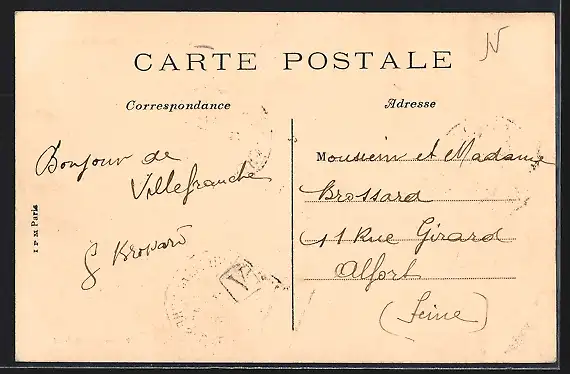 CARTE POSTALE
N
Correspondance
Adresse
Bonjour de
Villefranche
G Brossard
Monsieur et Madame
Brossard
11 Rue Girard
Alfort
(Seine)
I P M Paris
V